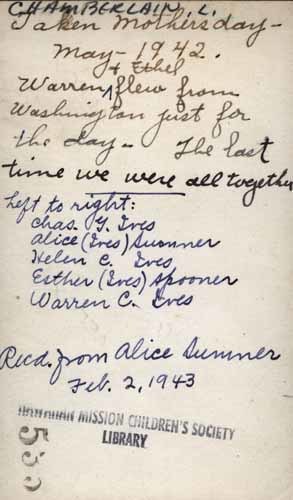 CHAMBERLAIN, L.
Taken Mothers day-
May- 1942.
& Ethel
Warren ^ flew from
Washington just for
the day- The last
time we were all together
Left to right:
Chas. G. Ives
Alice (Ives) Sumner
Helen C. Ives
Esther (Ives) Spooner
Warren C. Ives
Recd. from Alice Sumner
Feb. 2, 1943
HAWAIIAN MISSION CHILDREN'S SOCIETY
LIBRARY